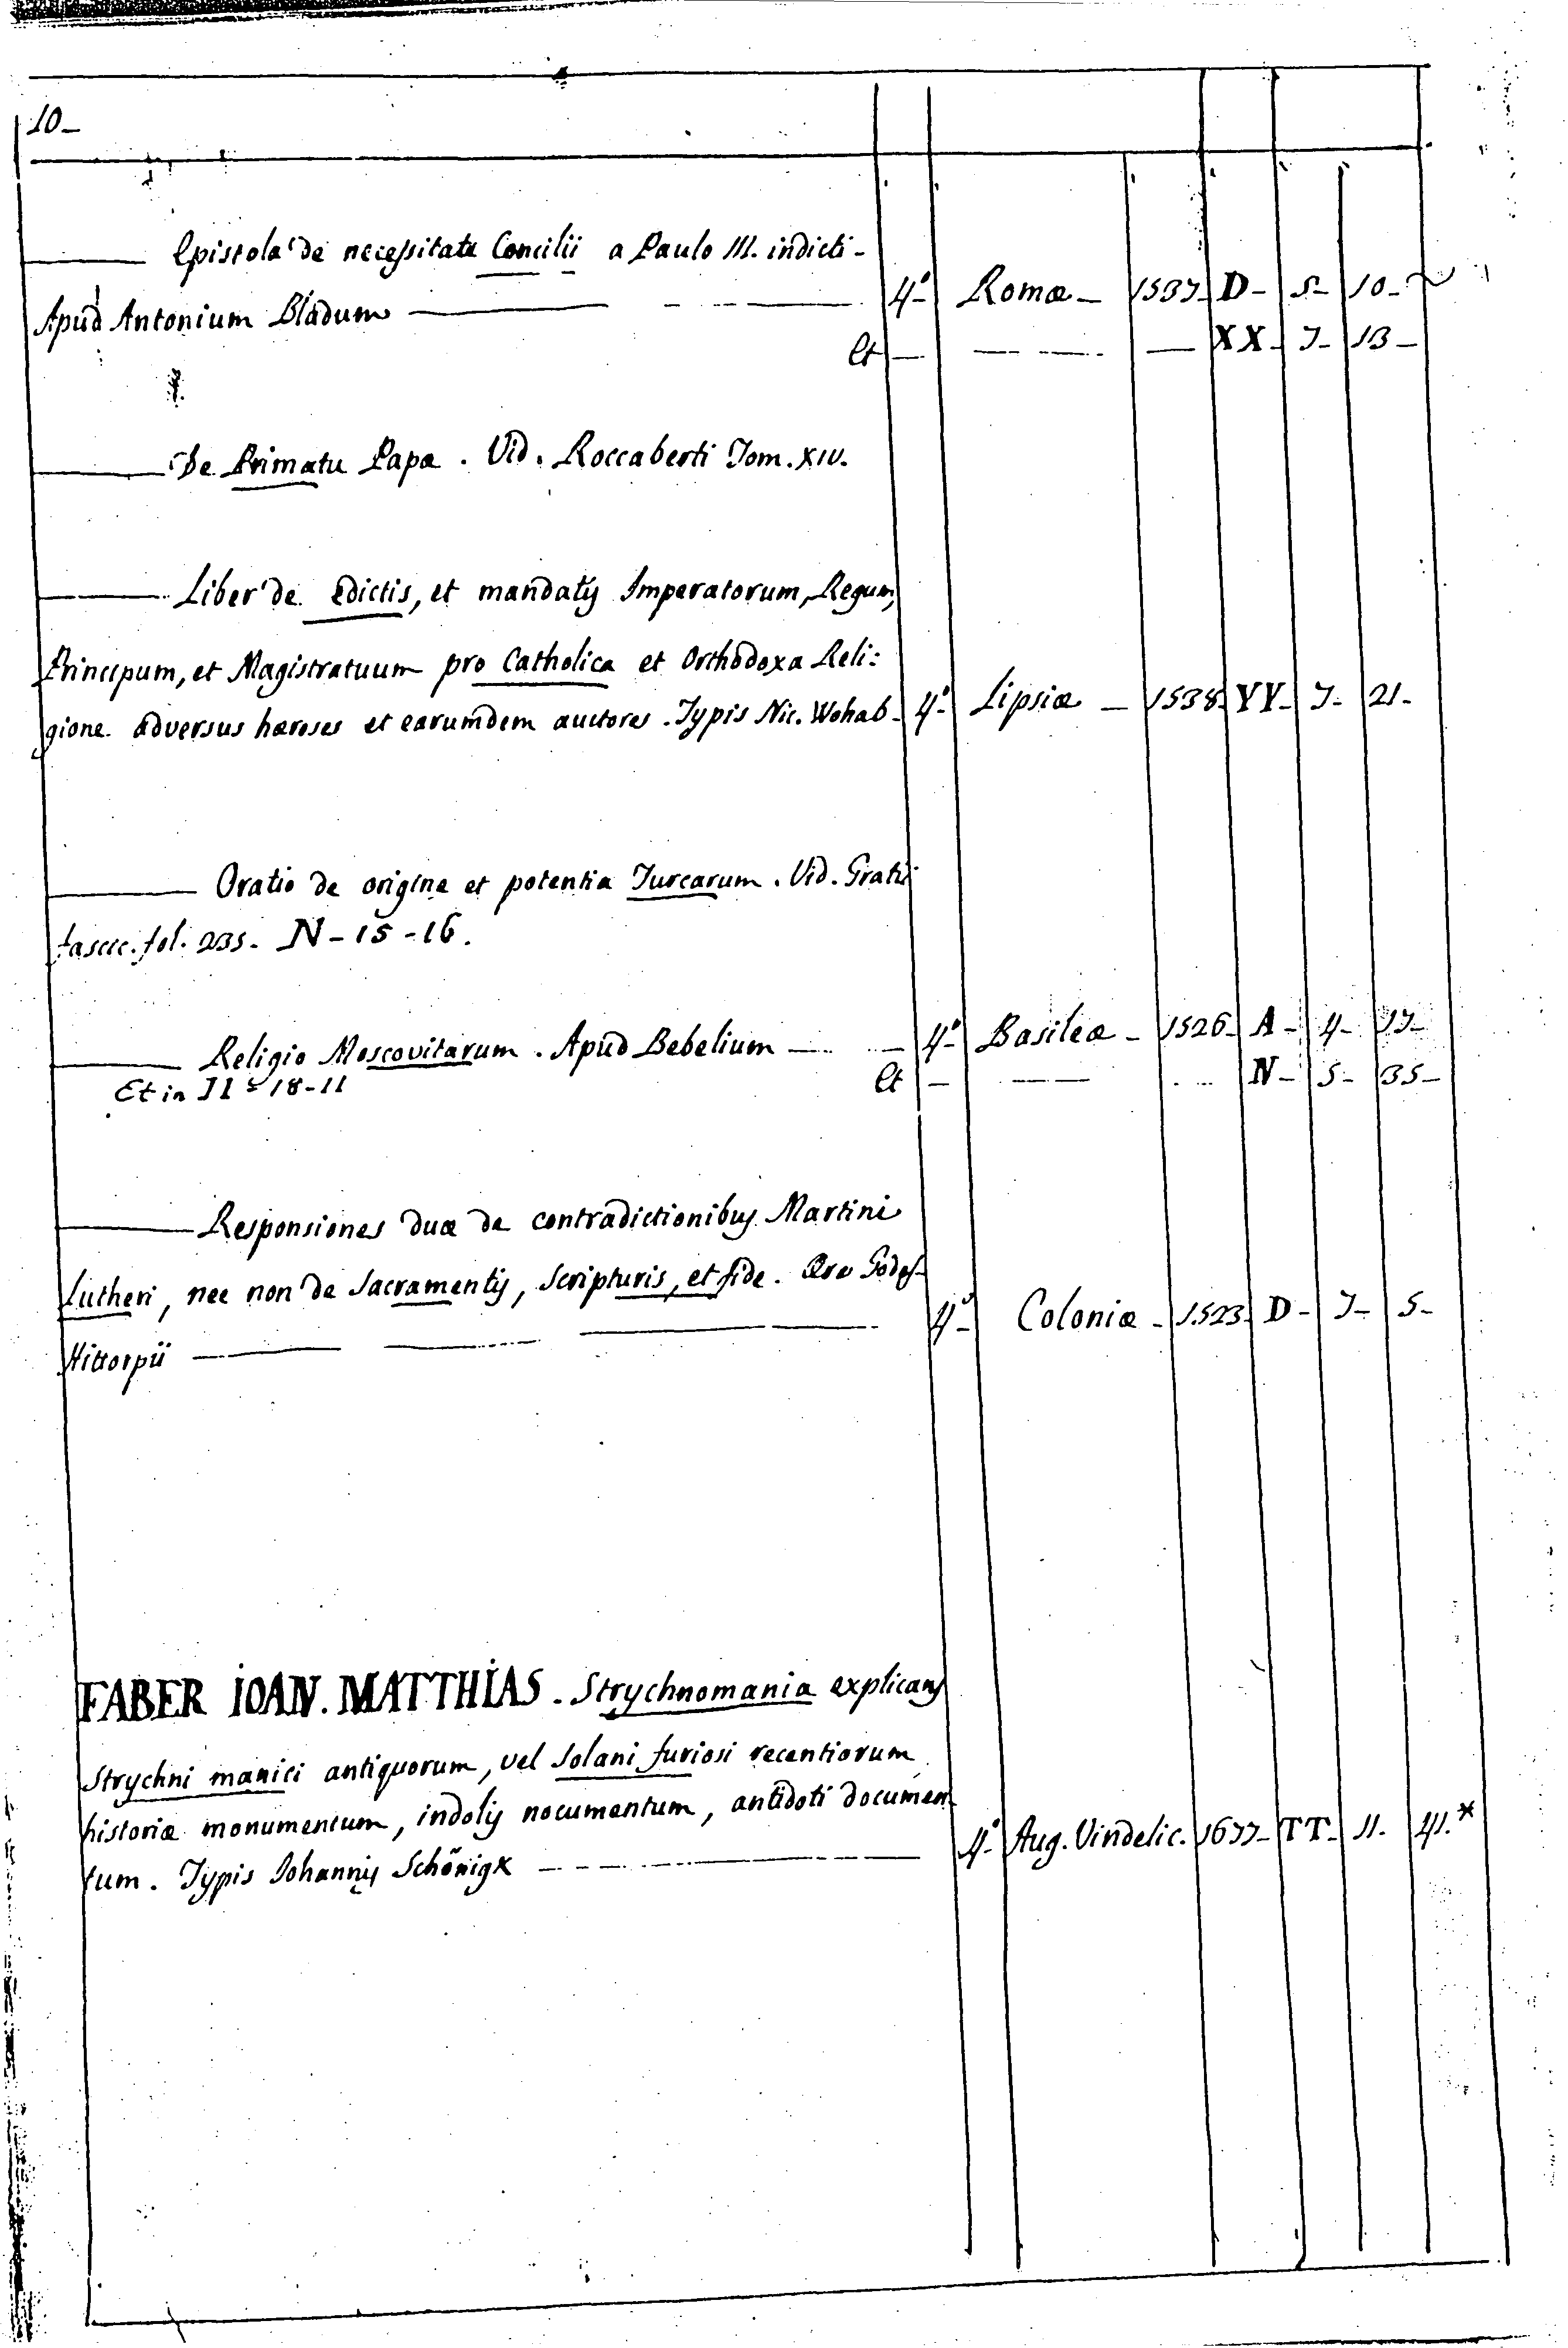 10_
——— Epistola de necessitate Concilii a Paulo III. indicti_
Apud Antonium Bladum ——— 4° Romæ_ 1537_ D_ 5_ 10_
Et — — — XX_ 7_ 13_
——— De Primatu Papæ. Vid. Roccaberti Tom. XIV.
——— Liber de edictis, et mandatis Imperatorum, Regum,
Principum, et Magistratuum pro Catholica et Orthodoxa Reli:
gione adversus hæreses et earumdem auctores. Typis Nic. Wohab_ 4° Lipsiæ_ 1538_ YY_ 7_ 21_
——— Oratio de origine et potentia Turcarum. Vid. Gratii
fascic. fol. 235_ N_15_16.
——— Religio Moscovitarum. Apud Bebelium — 4° Basileæ_ 1526_ A_ 4_ 17_
Et in 18-11 Et — — N_ 5_ 35_
——— Responsiones duæ de contradictionibus Martini
Lutheri, nec non de Sacramentis, Scripturis, et fide. Ære Godef_
Hittorpii ——— 4° Coloniæ_ 1523_ D_ 7_ 5_
FABER IOAN. MATTHIAS_ Strychnomania explicans
Strychni manici antiquorum, vel Solani furiosi recentiorum
historiæ monumentum, indolis nocumentum, antidoti documen
tum. Typis Johannis Schönigk ——— 4° Aug. Vindelic. 1677_ TT_ 11_ 41.*